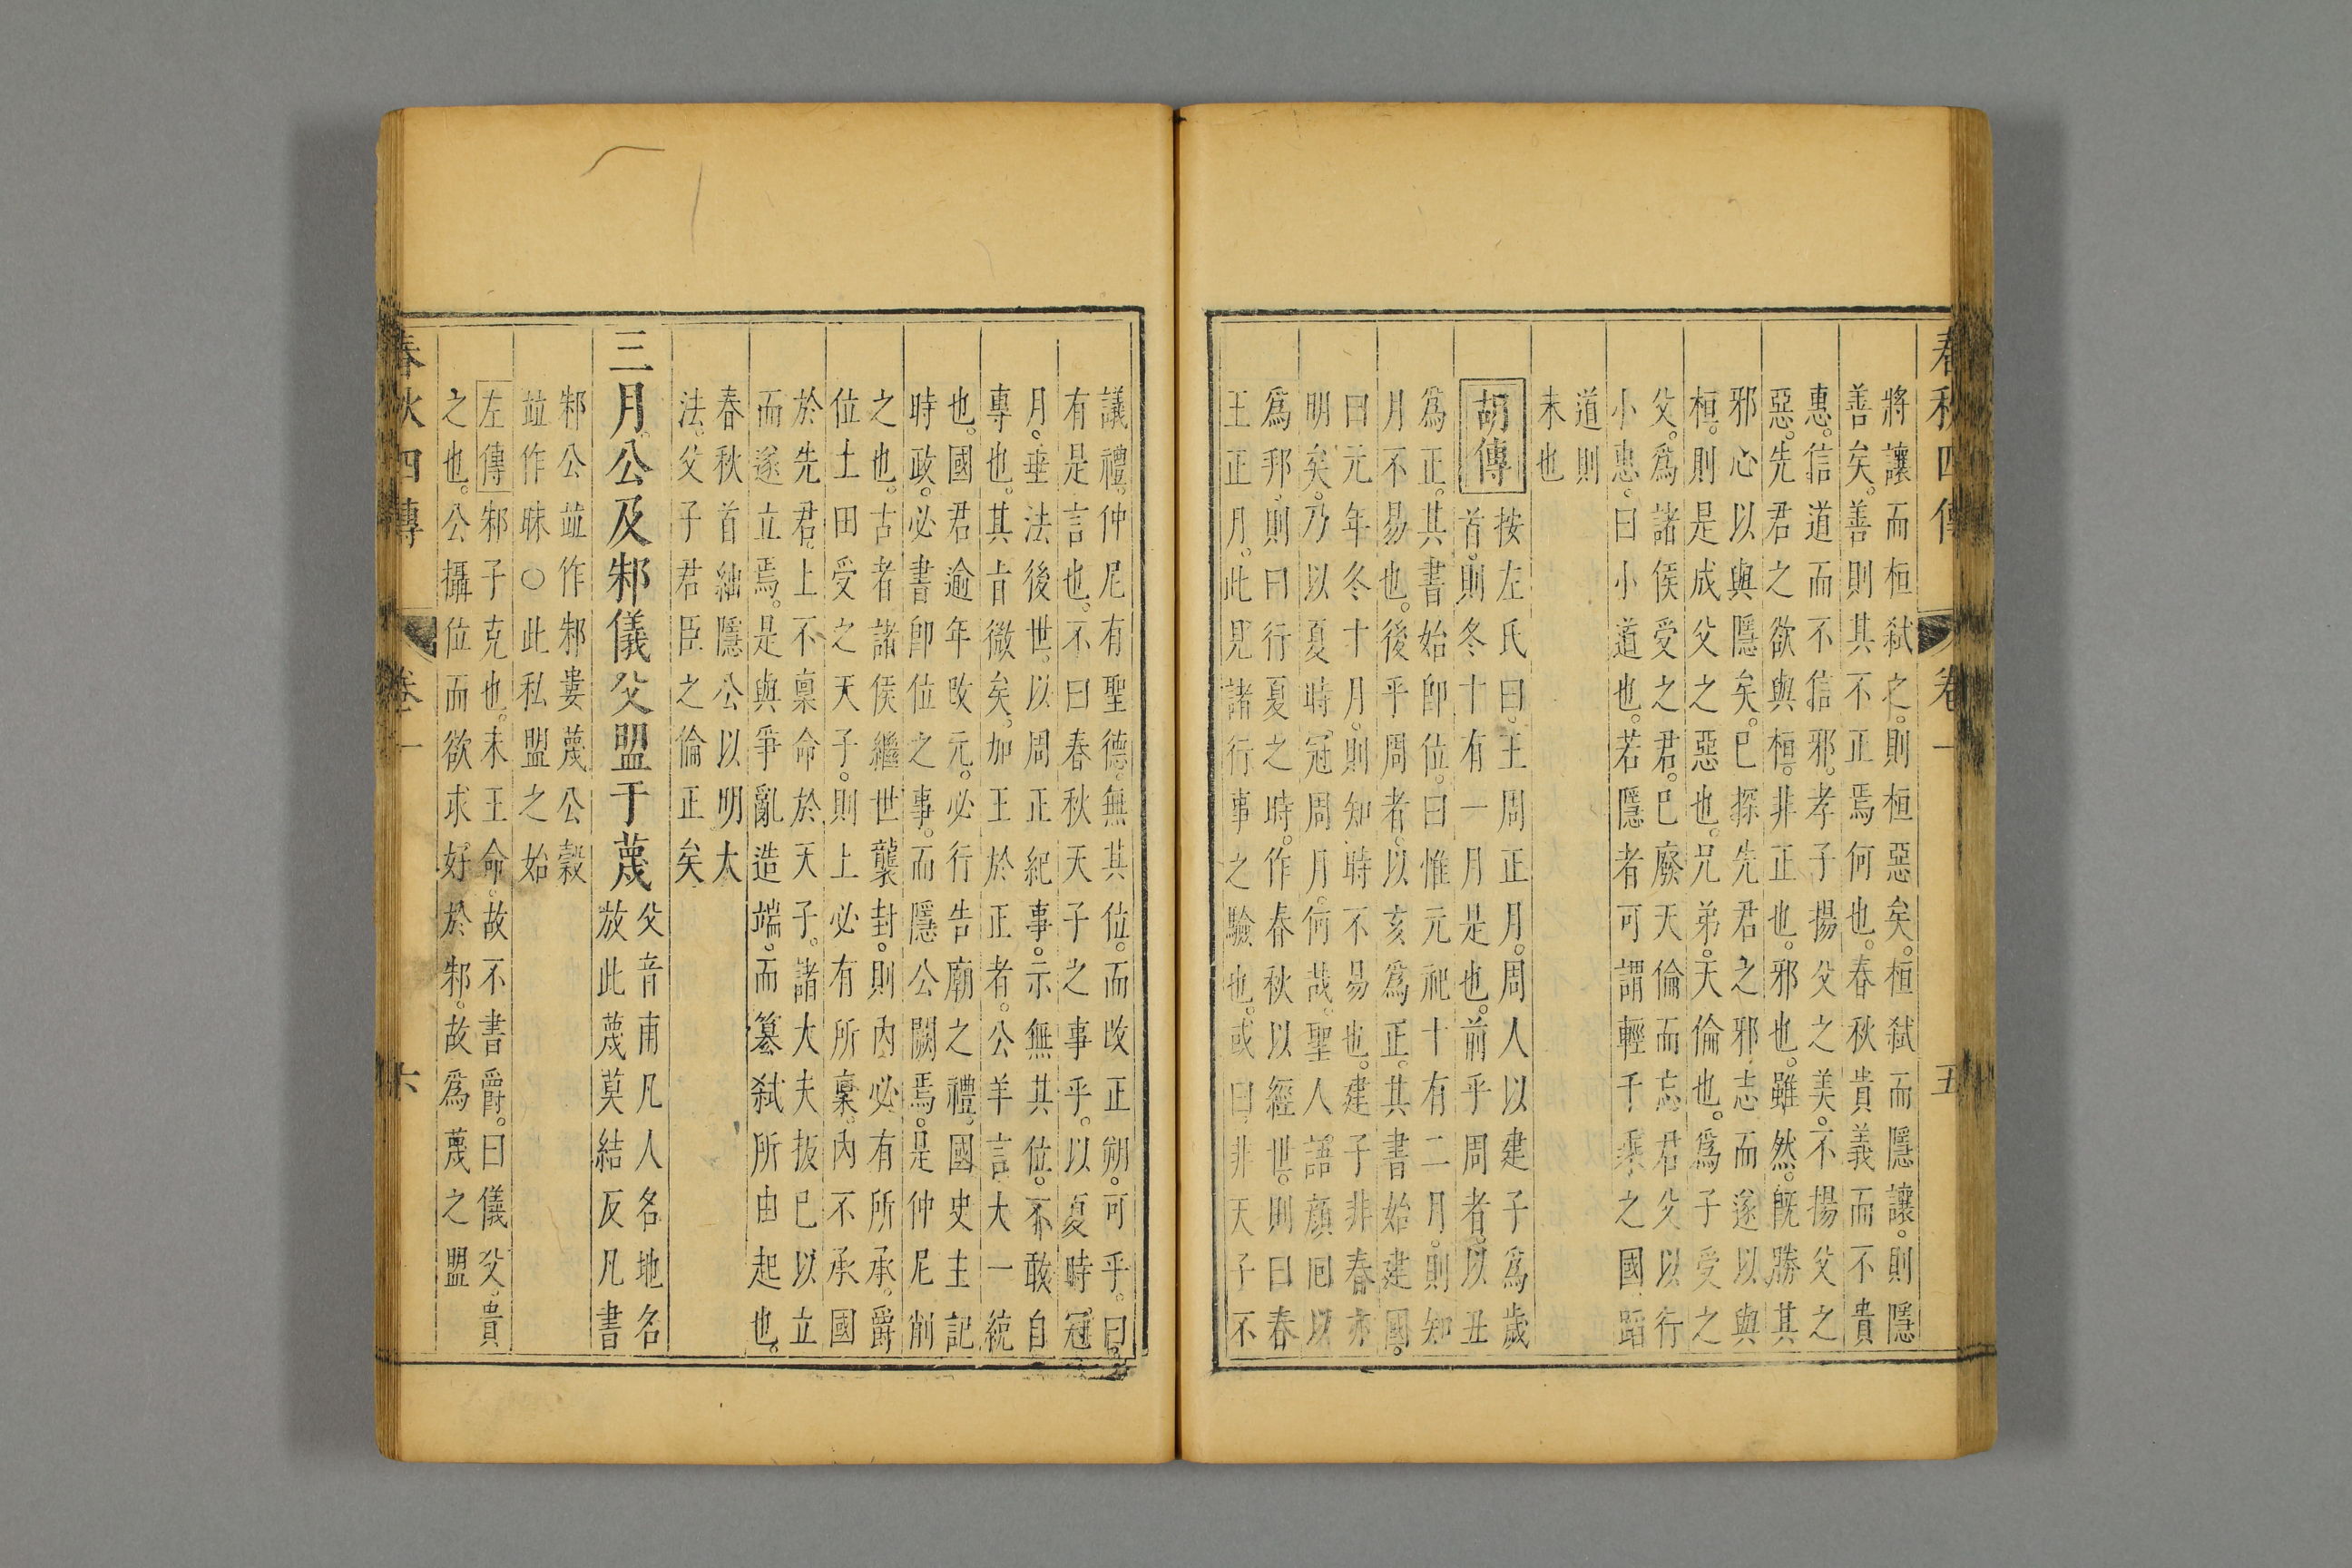 春秋四傳 卷一 五
將讓而桓弑之。則桓惡矣。桓弑而隱讓。則隱
善矣。善則其不正焉何也。春秋貴義而不貴
惠。信道而不信邪。孝子揚父之美。不揚父之
惡。先君之欲與桓。非正也。邪也。雖然。旣勝其
邪心以與隱矣。已探先君之邪志而遂以與
桓。則是成父之惡也。兄弟。天倫也。爲子受之
父。爲諸侯受之君。已廢天倫而忘君父以行
小惠。曰小道也。若隱者可謂輕千乘之國蹈
道則
未也
胡傳
按左氏曰。王周正月。周人以建子爲歲
首。則冬十有一月是也。前乎周者。以丑
爲正。其書始卽位。曰惟元祀十有二月。則知
月不易也。後乎周者。以亥爲正。其書始建國。
曰元年冬十月。則知時不易也。建子非春亦
明矣。乃以夏時冠周月。何哉。聖人語顏回以
爲邦。則曰行夏之時。作春秋以經世。則曰春
王正月。此見諸行事之驗也。或曰。非天子不
議禮。仲尼有聖德。無其位。而改正朔。可乎。曰。
有是言也。不曰春秋天子之事乎。以夏時冠
月。垂法後世。以周正紀事。示無其位。不敢自
專也。其旨微矣。加王於正者。公羊言大一統
也。國君逾年改元。必行告廟之禮。國史主記
時政。必書卽位之事。而隱公闕焉。是仲尼削
之也。古者諸侯繼世襲封。則內必有所承。爵
位土田受之天子。則上必有所稟。內不承國
於先君。上不禀命於天子。諸大夫扳已以立
而遂立焉。是與爭亂造端。而簒弑所由起也。
春秋首絀隱公以明大
法。父子君臣之倫正矣
三月。公及邾儀父盟于蔑
父音甫凡人名地名
放此蔑莫結反凡書
邾公竝作邾婁蔑公榖
竝作昧○此私盟之始
左傳 邾子克也。未王命。故不書爵。曰儀父。貴
之也。公攝位而欲求好於邾。故爲蔑之盟
春秋四傳 卷一 六